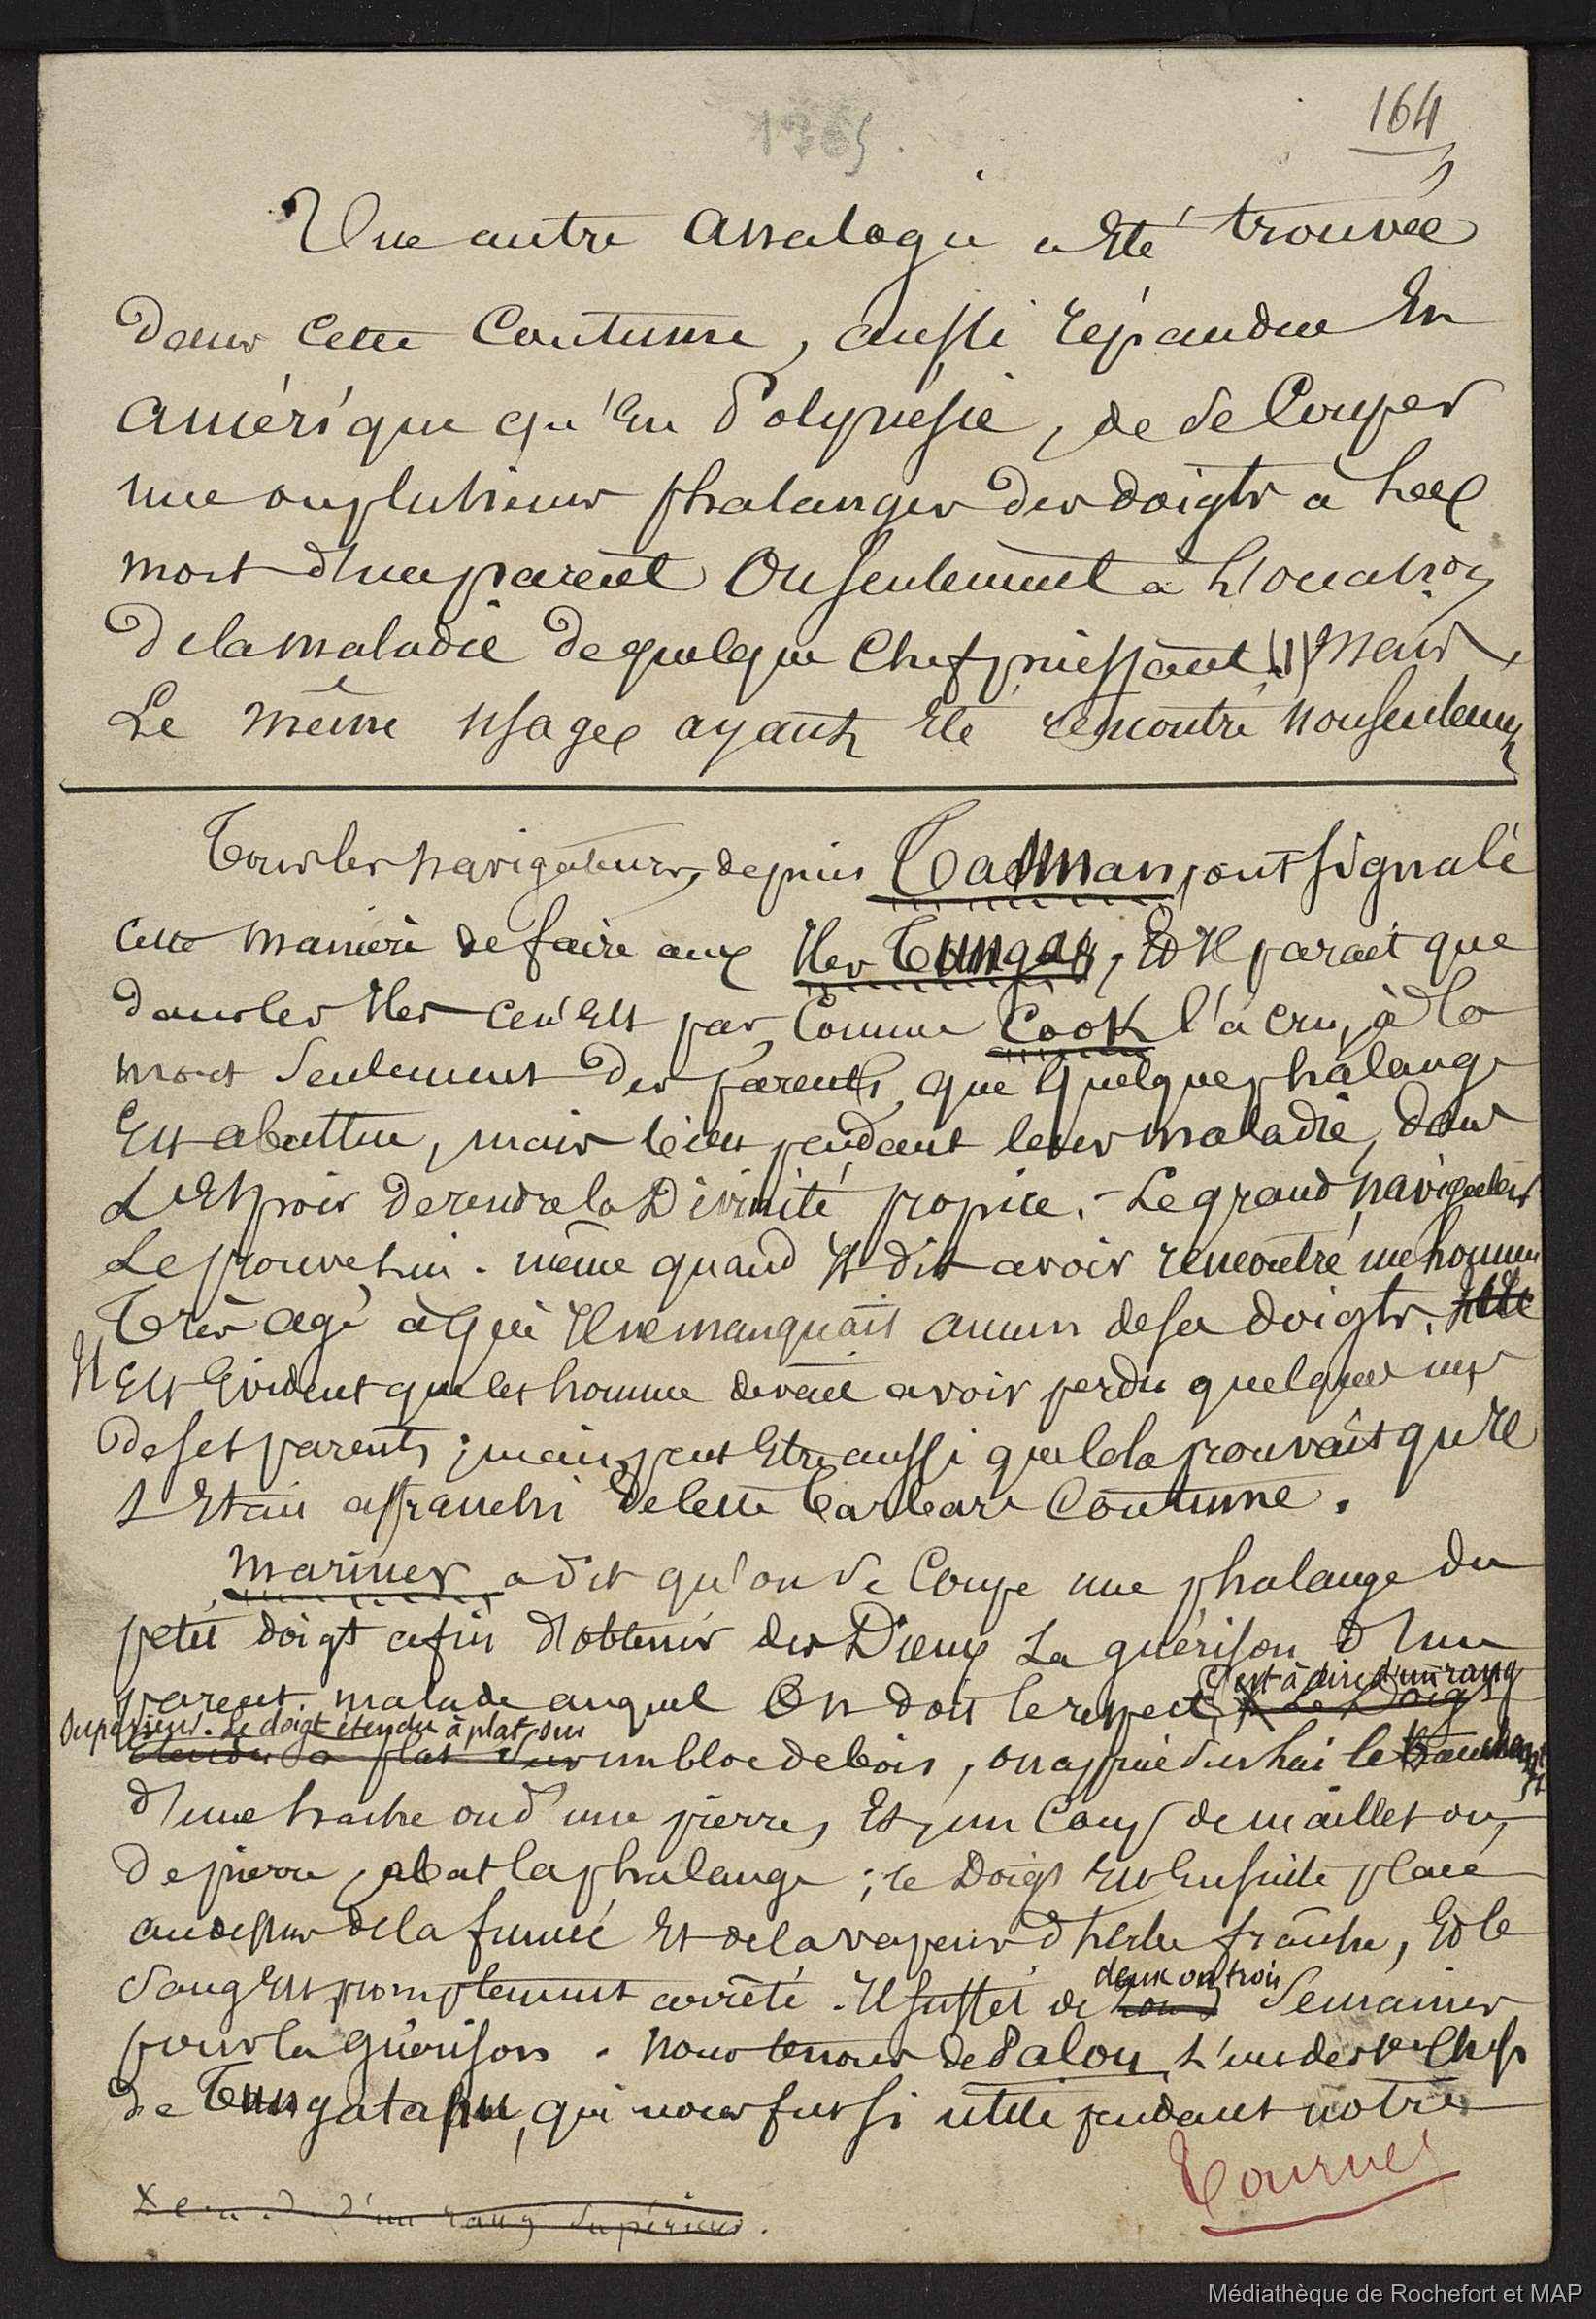 164
Une autre analogie a été trouvée
dans cette coutume, aussi répandue en
amérique qu'en Polynésie, de se couper
une ou plusieurs phalanges des doigts à la
mort d'un parent ou seulement à l'occasion
de la maladie de quelque chef puissant (1) mais,
le même usage ayant été rencontré non seulement
Tous les navigateurs, depuis Tasman, ont signalé
cette manière de faire aux Iles Tunga, et il parait que
dans les Iles ce n'est pas, comme Cook l'a cru, à la
mort seulement des parents, que quelque phalange
est abattue, mais bien pendant leur maladie, dans
l'espoir de rendre la Divinité propice. - Le grand navigateur
le prouve lui-même quand il dit avoir rencontré un homme
très agé à qui il ne manquait aucun de ses doigts.
Il est évident que cet homme devait avoir perdu quelques uns
de ses parents ; mais peut être aussi que cela prouvait qu'il
s'était affranchi de cette barbare coutume.
Mariner a dit qu'on se coupe une phalange du
petit doigt afin d'obtenir des Dieux la guérison d'un
parent malade auquel on doit le respect, c'est à dire d'un rang
X Le Doigt
supérieur. Le doigt étendu à plat sur
étendu à plat sur un bloc de bois, on appuie sur lui le tranchant
d'une hache ou d'une pierre, et, un coup de maillet ou,
de pierre, abat la phalange ; le doigt est ensuite placé
au dessus de la fumée et de la vapeur d'herbe fraîche, et le
deux ou trois
sang est promptement arrêté. Il suffit de semaines
pour la guérison. Nous tenons de Palou, l'un des chefs
de Tungatapu, qui nous fut si utile pendant notre
Tournez
X c. a. d. d'un rang supérieur.
Médiathèque de Rochefort et MAP